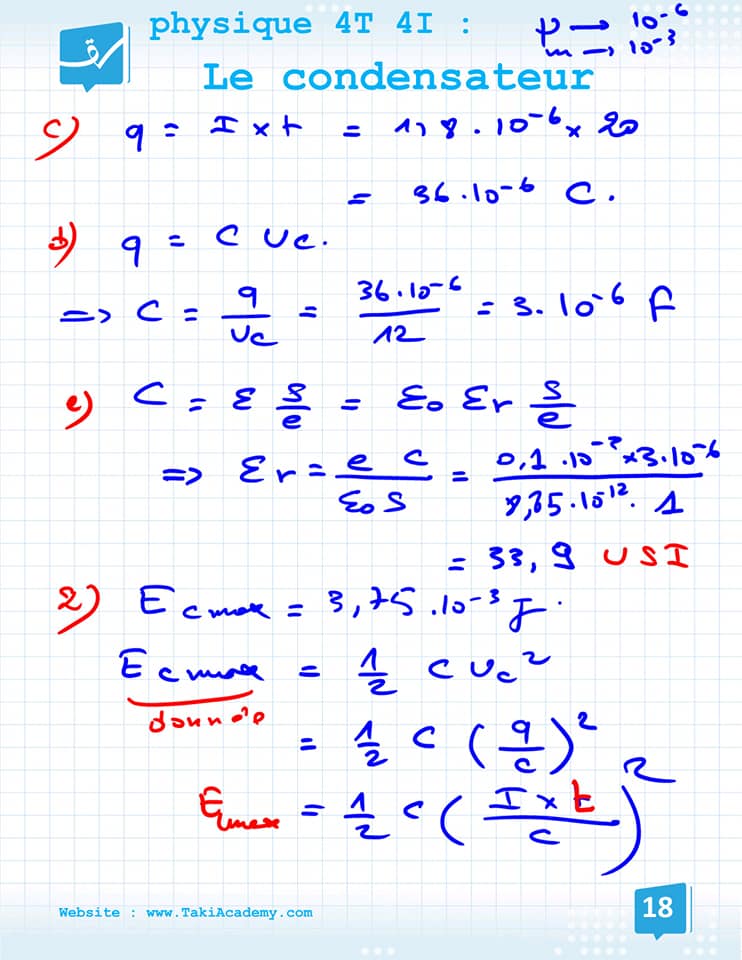 physique 4T 4I :
µ → 10⁻⁶
m → 10⁻³
Le condensateur
c) q = I x t = 1,8 . 10⁻⁶ x 20
= 36.10⁻⁶ C.
d) q = C Uc.
=> C = q/Uc = 36.10⁻⁶/12 = 3.10⁻⁶ F
e) C = ε S/e = ε₀ εr S/e
=> εr = e C/ε₀ S = 0,1 .10⁻³ x 3.10⁻⁶/8,85.10⁻¹². 1
= 33,9 USI
2) Ecmax = 3,75 .10⁻³ J.
Ecmax = 1/2 C Uc²
donnée
= 1/2 C (q/C)²
Emax = 1/2 C (I x t/C)²
Website : www.TakiAcademy.com
18